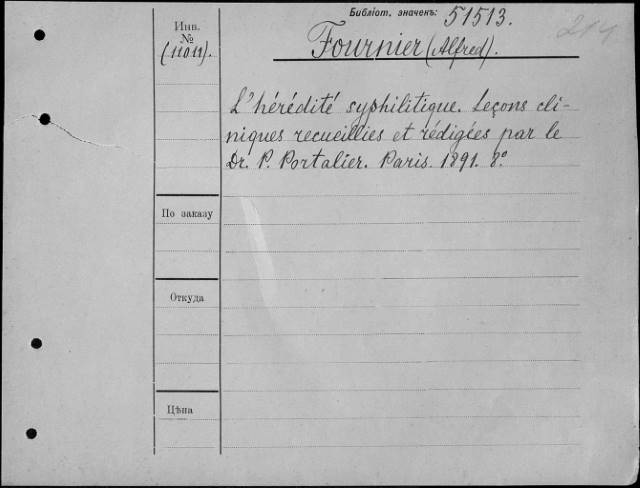 Библіот. значекъ: 51513.
214
Инв.
№
(11011).
Fournier (Alfred).
L'hérédité syphilitique. Leçons cli-
niques recueillies et rédigées par le
Dr. P. Portalier. Paris. 1891. 8°.
По заказу
Откуда
Цѣна